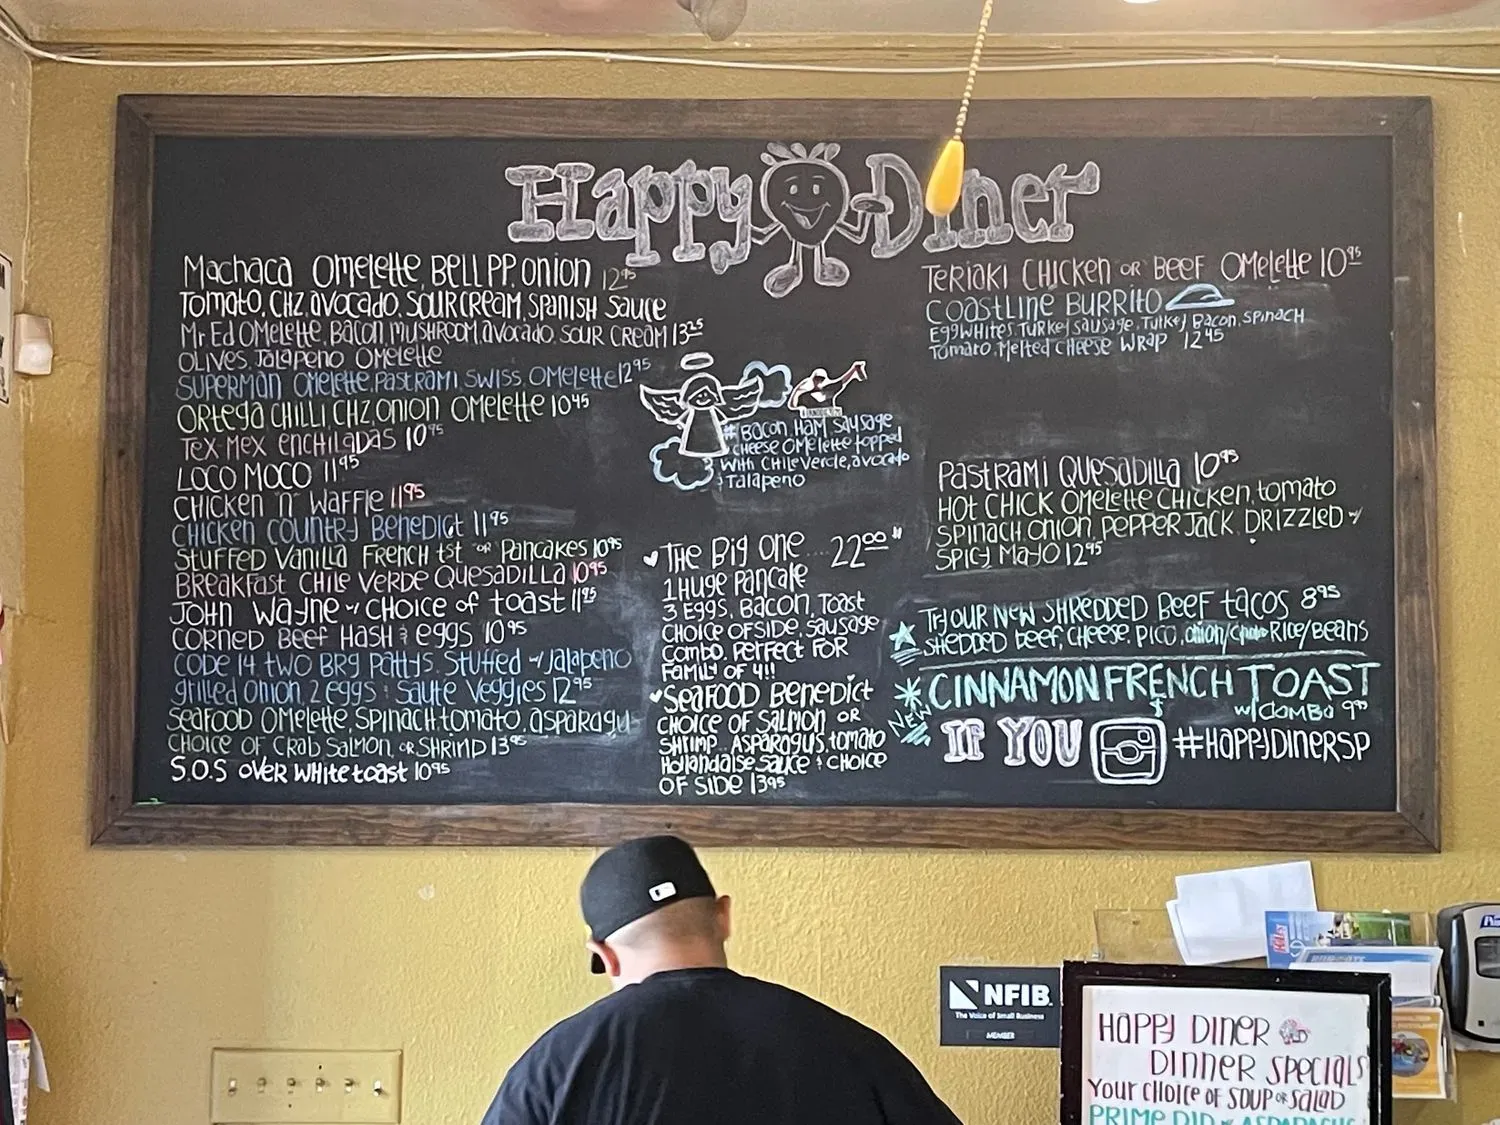 Happy Diner
Machaca Omelette, Bell PP, onion 12.95
Tomato, CHZ, avocado, sour cream, Spanish Sauce
Mr Ed Omelette, Bacon, mushroom, avocado, sour cream 13.25
Olives, Jalapeno Omelette
Superman Omelette, Pastrami Swiss, Omelette 12.95
Ortega Chilli, CHZ, onion Omelette 10.45
Tex-Mex enchiladas 10.95
Loco Moco 11.95
Chicken "n" Waffle 11.95
Chicken Country Benedict 11.95
Stuffed Vanilla French tst or Pancakes 10.95
Breakfast Chile Verde Quesadilla 10.95
John Wayne w/ choice of toast 11.95
Corned Beef Hash & eggs 10.95
Code 14 two BRG Pattys, Stuffed w/ jalapeno
grilled onion, 2 eggs & Saute Veggies 12.95
Seafood Omelette, Spinach tomato, asparagu
choice of Crab Salmon, or Shrimp 13.95
S.O.S over white toast 10.95
# Bacon, Ham, Sausage
cheese omelette topped
with Chile Verde, avocado
& Jalapeno
The Big One ... 22.00
1 Huge Pancake
3 Eggs, Bacon, Toast
choice of side, Sausage
Combo, Perfect for
Family of 4!!
Seafood Benedict
choice of Salmon or
Shrimp.. Asparagus, tomato
Hollandaise Sauce & choice
of side 13.95
Teriaki Chicken or Beef Omelette 10.95
Coastline Burrito
Egg whites, Turkey Sausage, Turkey Bacon, Spinach
Tomato, Melted Cheese Wrap 12.45
Pastrami Quesadilla 10.95
Hot Chick Omelette Chicken, tomato
Spinach, onion, Pepper Jack, Drizzled w/
Spicy Mayo 12.95
Try our new Shredded Beef tacos 8.95
Shedded beef, cheese, pico, onion/ Rice/Beans
New Cinnamon French Toast
w/ combo 9
If You #HappyDinerSP
NFIB
The Voice of Small Business
MEMBER
Happy Diner
Dinner Specials
Your choice of soup or salad
Prime Rib